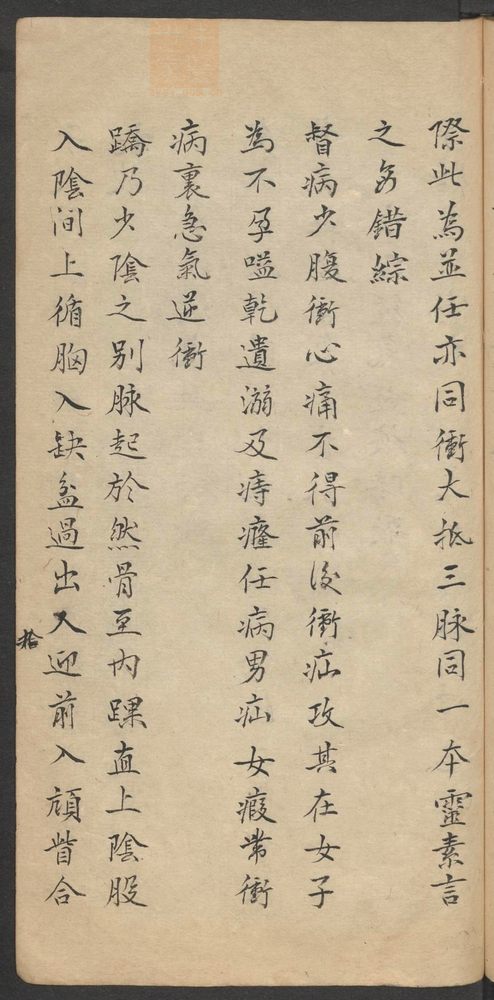 際此為並任亦同衝大抵三脉同一本靈素言
之多錯綜
督病少腹衝心痛不得前後衝疝攻其在女子
為不孕嗌乾遺溺及痔癃任病男疝女瘕帶衝
病裏急氣逆衝
蹻乃少陰之別脉起於然骨至內踝直上陰股
入陰间上循胸入缺盆過出人迎前入頄眥合
拾